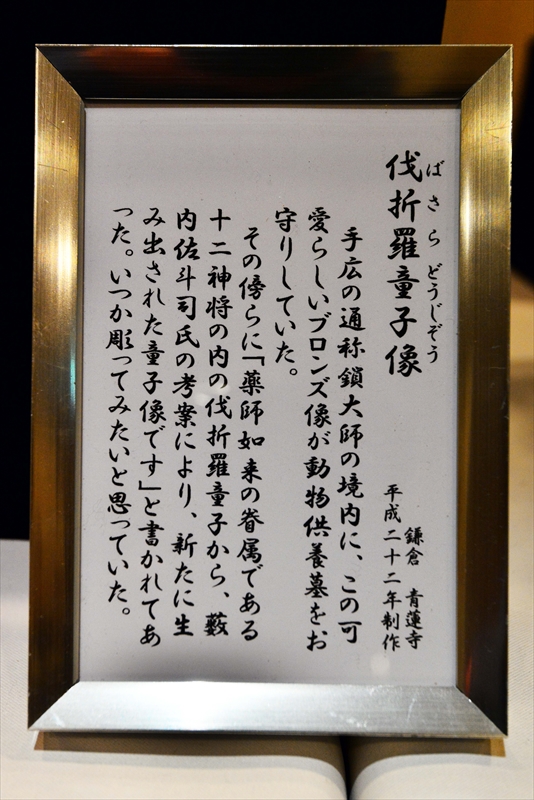 ばさらどうじぞう
伐折羅童子像
鎌倉 青蓮寺
平成二十二年制作
手広の通称鎖大師の境内に、この可
愛らしいブロンズ像が動物供養墓をお
守りしていた。
その傍らに「薬師如来の眷属である
十二神将の内の伐折羅童子から、薮
内佐斗司氏の考案により、新たに生
み出された童子像です」と書かれてあ
った。いつか彫ってみたいと思っていた。